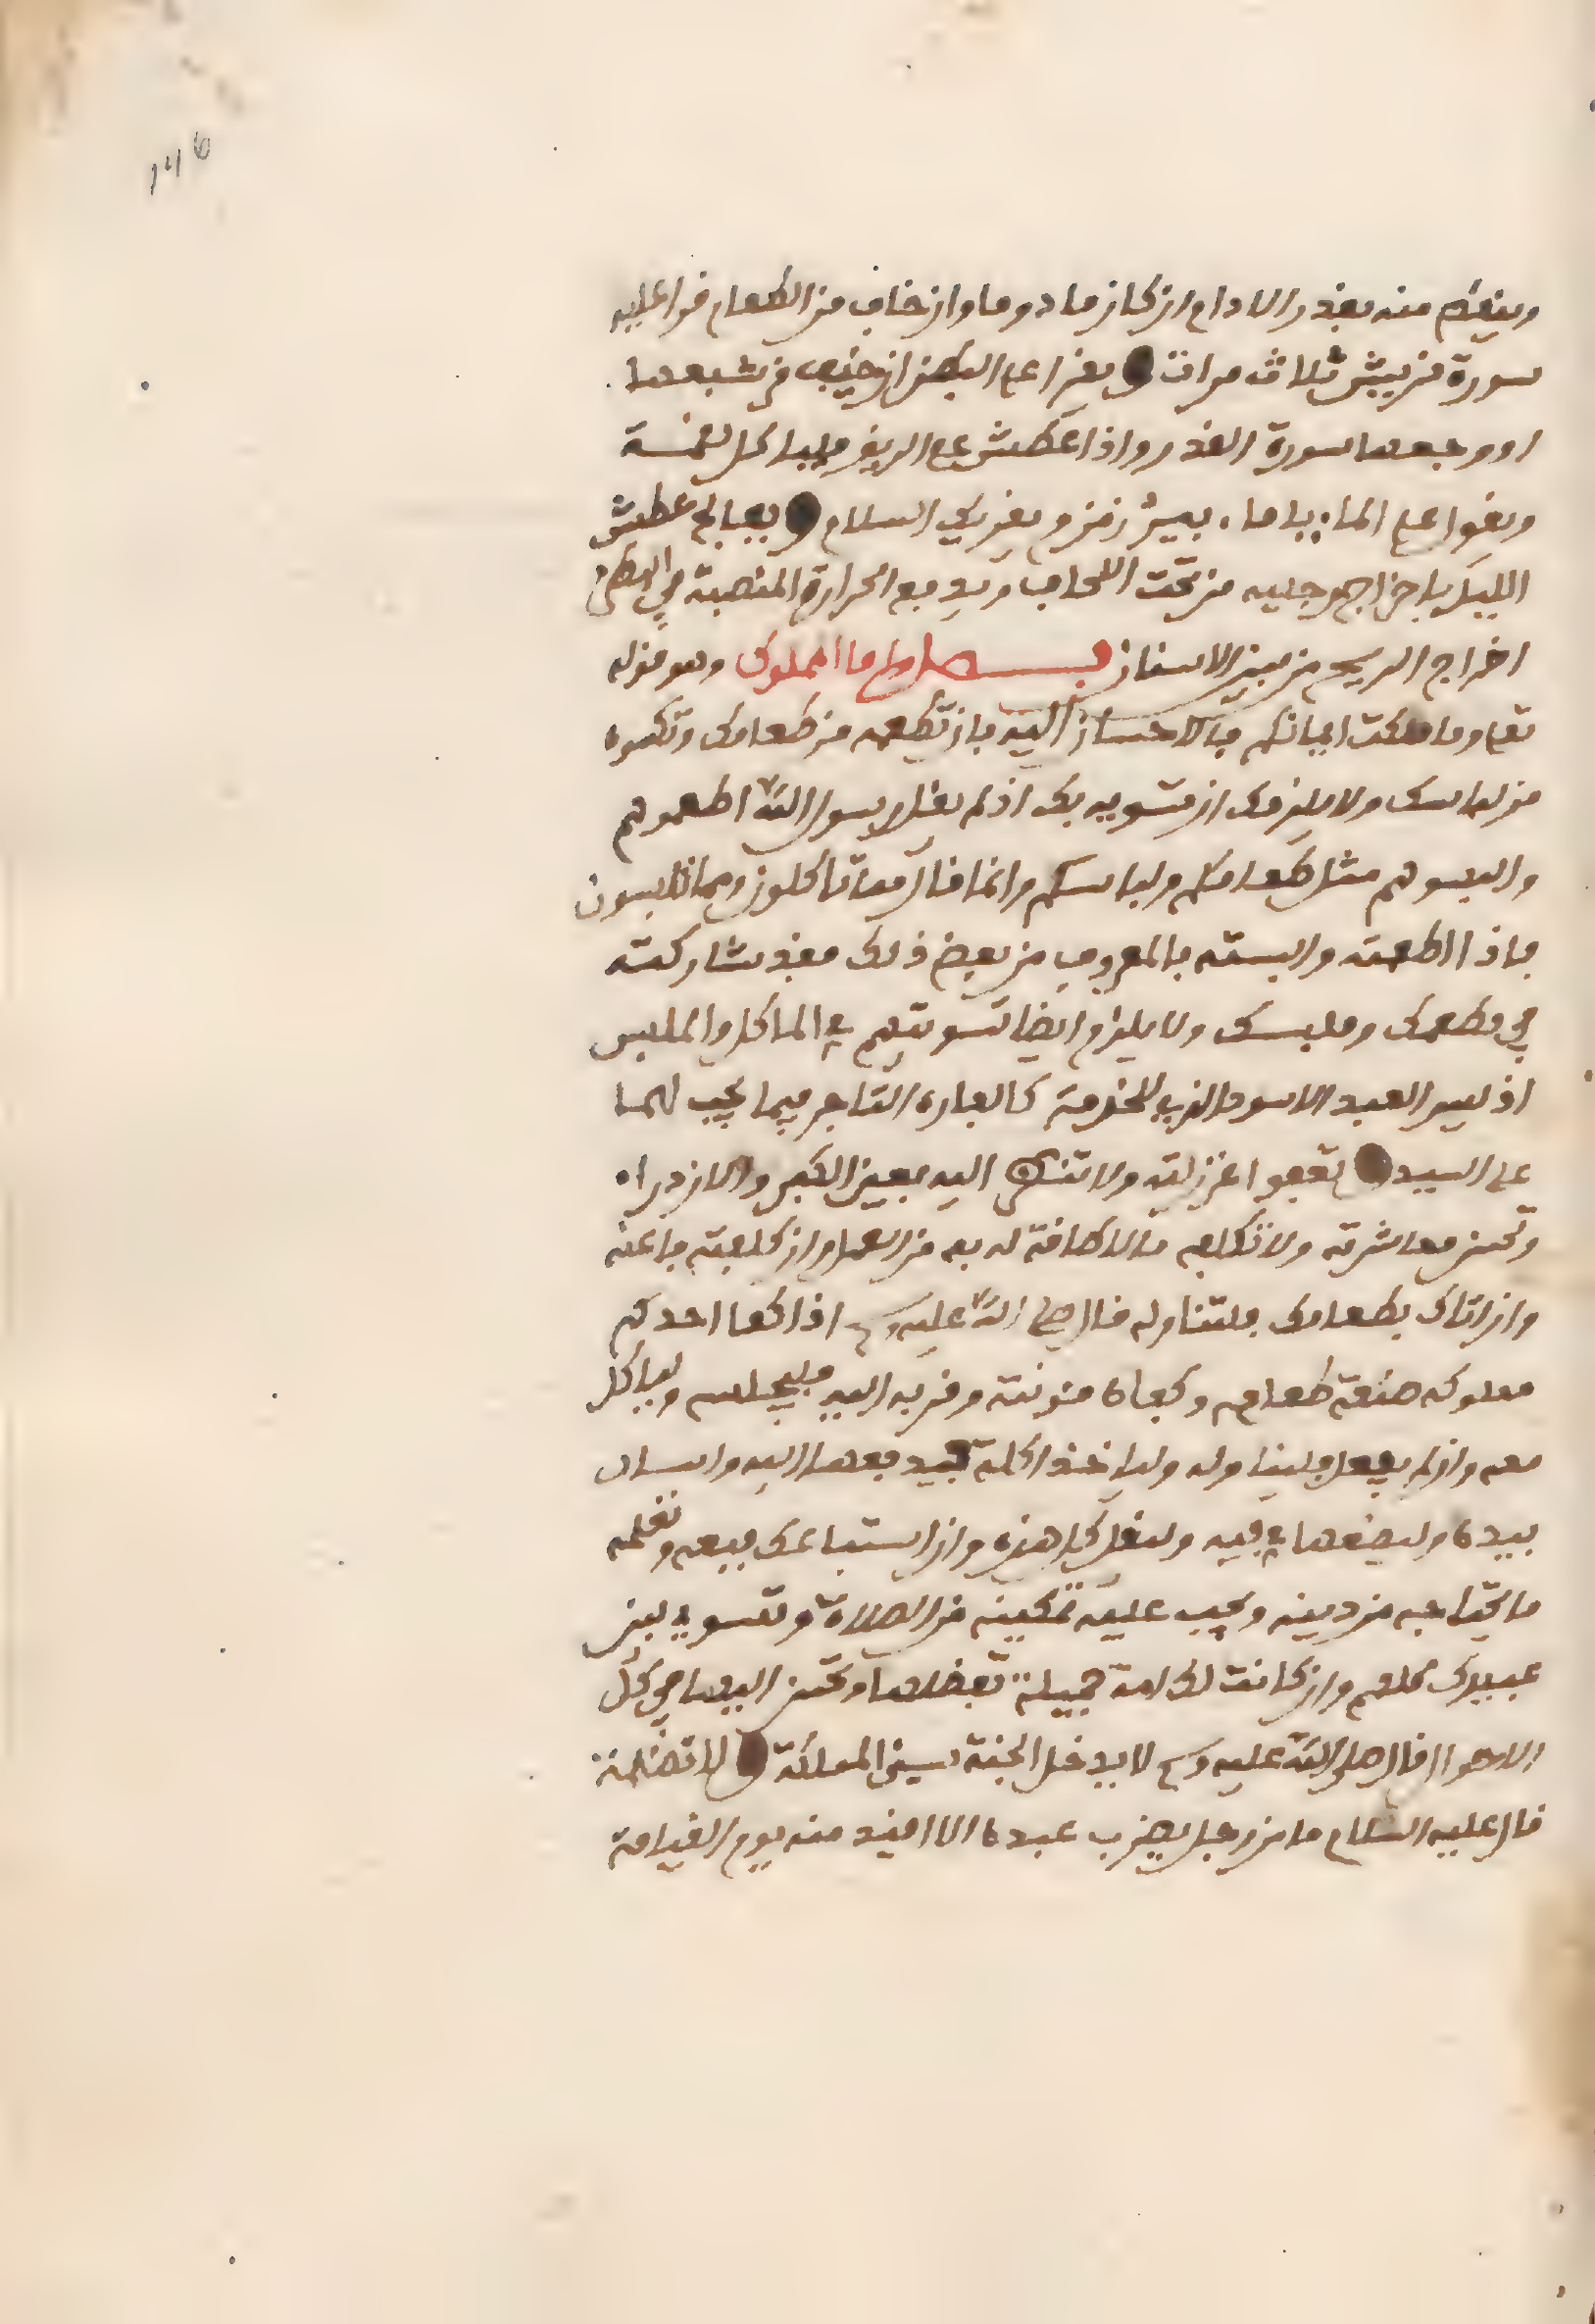 146
وينعم منه بقدر الادام ان كان مادوما وان خاف من الطعام قرا عليه
سورة قريش ثلاث مرات ويقرا على البطن ان خيف من شبعها
او وجعها سورة القدر واذا عطش على الريق فلياكل لقمة
ويقرا على الماء ياماء بير زمزم يقريك السلام ويعالج عطش
الليل باخراج رجليه من تحت اللحاف ويدفع الحرارة المنصبة في البطن
اخراج الريح من بين الاسنان فصل واما المملوك وهو قوله
تعلى وما ملكت ايمانكم فالاحسان اليه بان تطعمه من طعامك وتكسوه
من لباسك ولا يلزمك ان تسويه بك اذ لم يقل رسول الله اطعموهم
والبسوهم مثل طعامكم ولباسكم وانما قال مما تاكلون ومما تلبسون
فاذا اطعمته والبسته بالمعروف من بعض ذلك فقد شاركته
في مطعمك وملبسك ولا يلزم ايضا تسويتهم في الماكل والملبس
اذ ليس العبد الاسود الذي للخدمة كالفاره التاجر فيما يجب لهما
على السيد وتعفوا عن زلته ولا تنظر اليه بعين الكبر والازدراء
وتحسن معاشرته ولا تكلفه ما لا طاقة له به من العمل وان كلفته فاعنه
وان اتاك بطعامك فلتناوله قال صلى الله عليه وسلم اذا كفا احدكم
مملوكه صنعة طعامه وكفاه مئونته وقربه اليه فليجلسه ولياكل
معه وان لم يفعل فليناوله ولياخذ اكلة فيدفعها اليه واسار
بيده وليضعها في فيه وليقل كل هذه وان استباعك فبعه وتعلمه
ما يحتاجه من دينه ويجب عليك تمكينه من الصلاة وتسوي بين
عبيدك كلهم وان كانت لك امة جميلة تفضلها وتحسن اليها في كل
الاحوال قال صلى الله عليه وسلم لا يدخل الجنة سيئ الملكة ولا تظلمه
قال عليه السلام ما من رجل يضرب عبده الا اقيد منه يوم القيامة